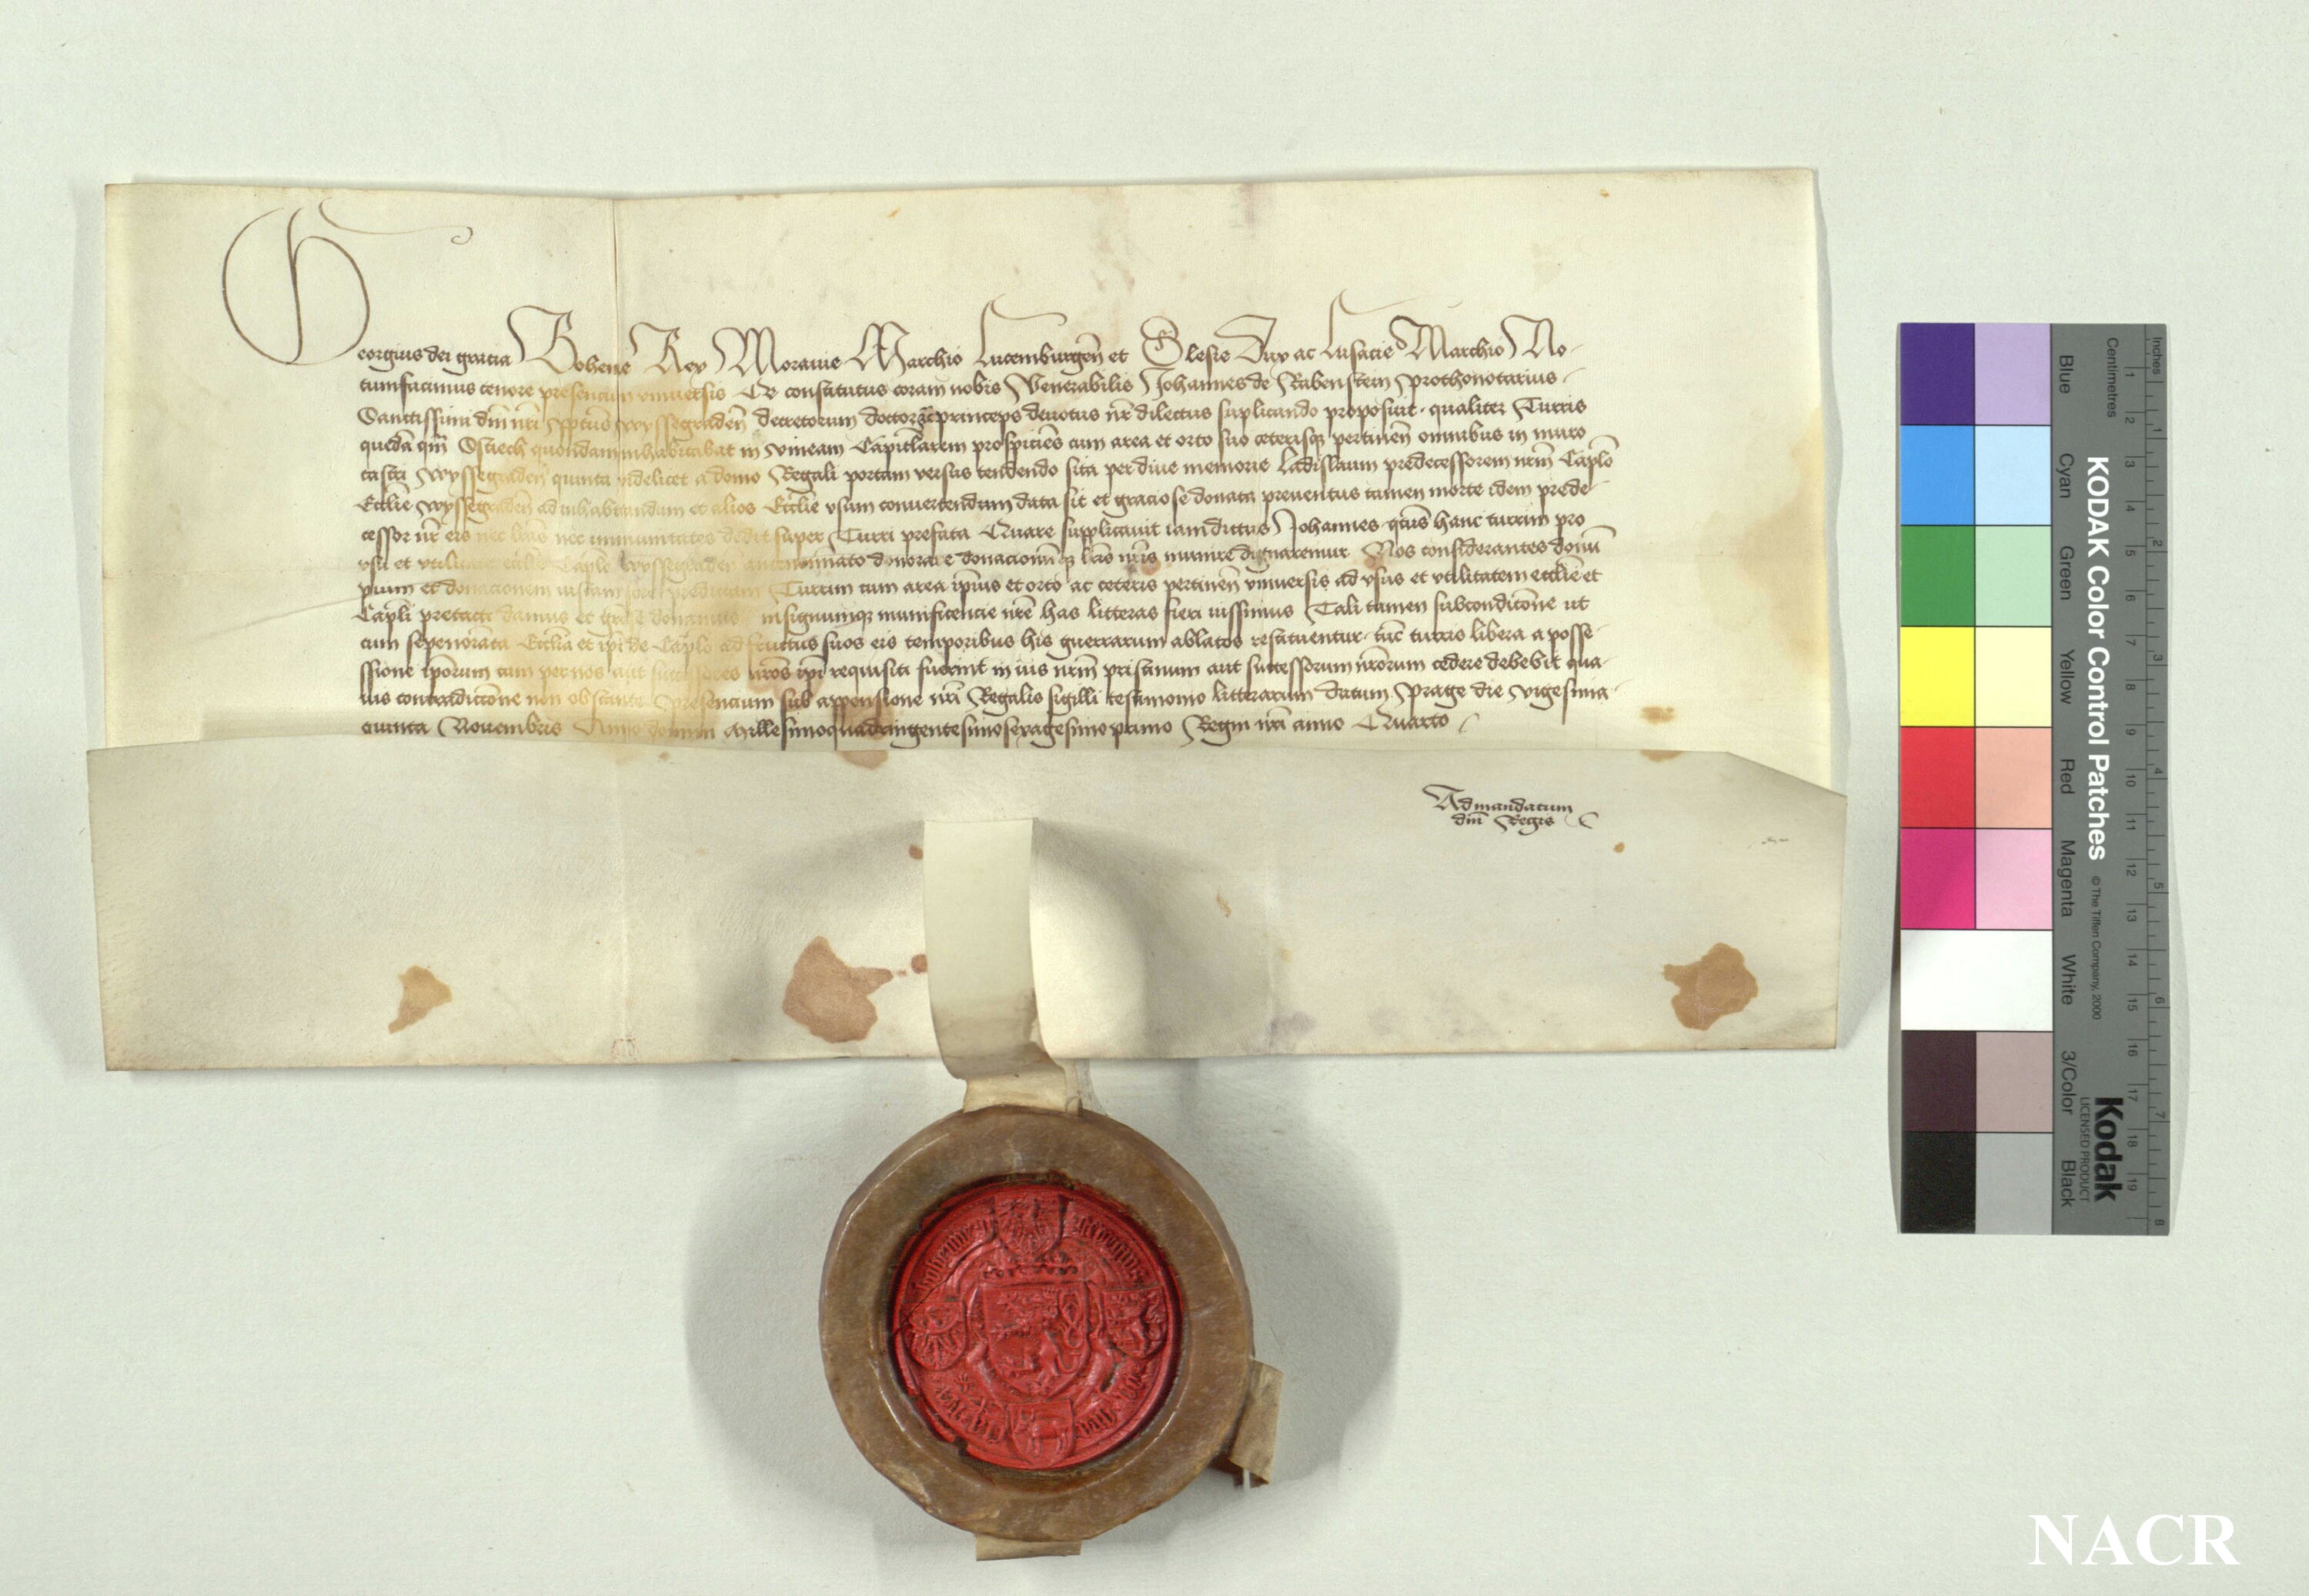 Georgius dei gratia Bohemie Rex Moravie Marchio Lucemburgeñ et Slesie Dux ac Lusacie Marchio No-
tumfacimus tenore presencium universis Qr constitutus coram nobis Venerabilis Johannes de Rabenstein prothonotarius
Sanctissimi dm̄ nr̄i pp̄tus wyssegradeñ decretorum doctor princeps devotus nr̄ dilectus suplicando proposuit qualiter Turris
quedā qm̄ Sstiech quondam inhabitabat in vineam Capitl̄arem prospiciēs cum area et orto suo ceterisqʒ pertineñ omnibus in muro
castri wyssegradeñ quinta videlicet a domo Regali portam versus tendendo sita per dive memorie Ladislaum predecessorem nrm̄ Cap̄lo
Eccl̄ie wyssegradeñ ad inhabitandum et alios Eccl̄ie usum convertendum data sit et graciose donata preventus tamen morte idem prede
cessor nr̄ eis nec lr̄as nec immunitates dedit super Turri prefata Quare supplicavit iam dictus Johannes qtūs hanc turrim pro
usu et utilitate eccl̄ie Cap̄lo wyssegradeñ donare donacionūqʒ lr̄is nr̄is munire dignaremur Nos considerantes donū
pium et donacionem iustam fore predictam Turrim cum area ip̄ius et orto ac ceteris pertineñ universis ad usus et utilitatem eccl̄ie et
Cap̄li pretacti damus et gr̄ose donamus in signumqʒ munificencie nr̄e has litteras fieri iussimus Tali tamen subcondicōne ut
cum sepenorata Eccl̄ia et ip̄i de Cap̄lo ad fructus suos eis temporibus his guerrarum ablatos restituentur tūc turris libera a posse
ssione ip̄orum cum per nos aut successores nr̄os ip̄i requisiti fuerint in ius nrm̄ pristinum aut successorum nr̄orum cedere debebit qua
vis contradiccōne non obstante presencium sub appensione nr̄i Regalis sigilli testimonio litterarum Datum prage die vigesima
quinta Novembris Anno domini Millesimoquadringentesimosexagesimoprimo Regni nr̄i anno Quarto
Ad mandatum
dm̄i Regis
Inches
Centimetres
1 2 3 4 5 6 7 8
1 2 3 4 5 6 7 8 9 10 11 12 13 14 15 16 17 18 19
Blue Cyan Green Yellow Red Magenta White 3/Color Black
KODAK Color Control Patches © The Tiffen Company, 2000
Kodak
LICENSED PRODUCT
NACR